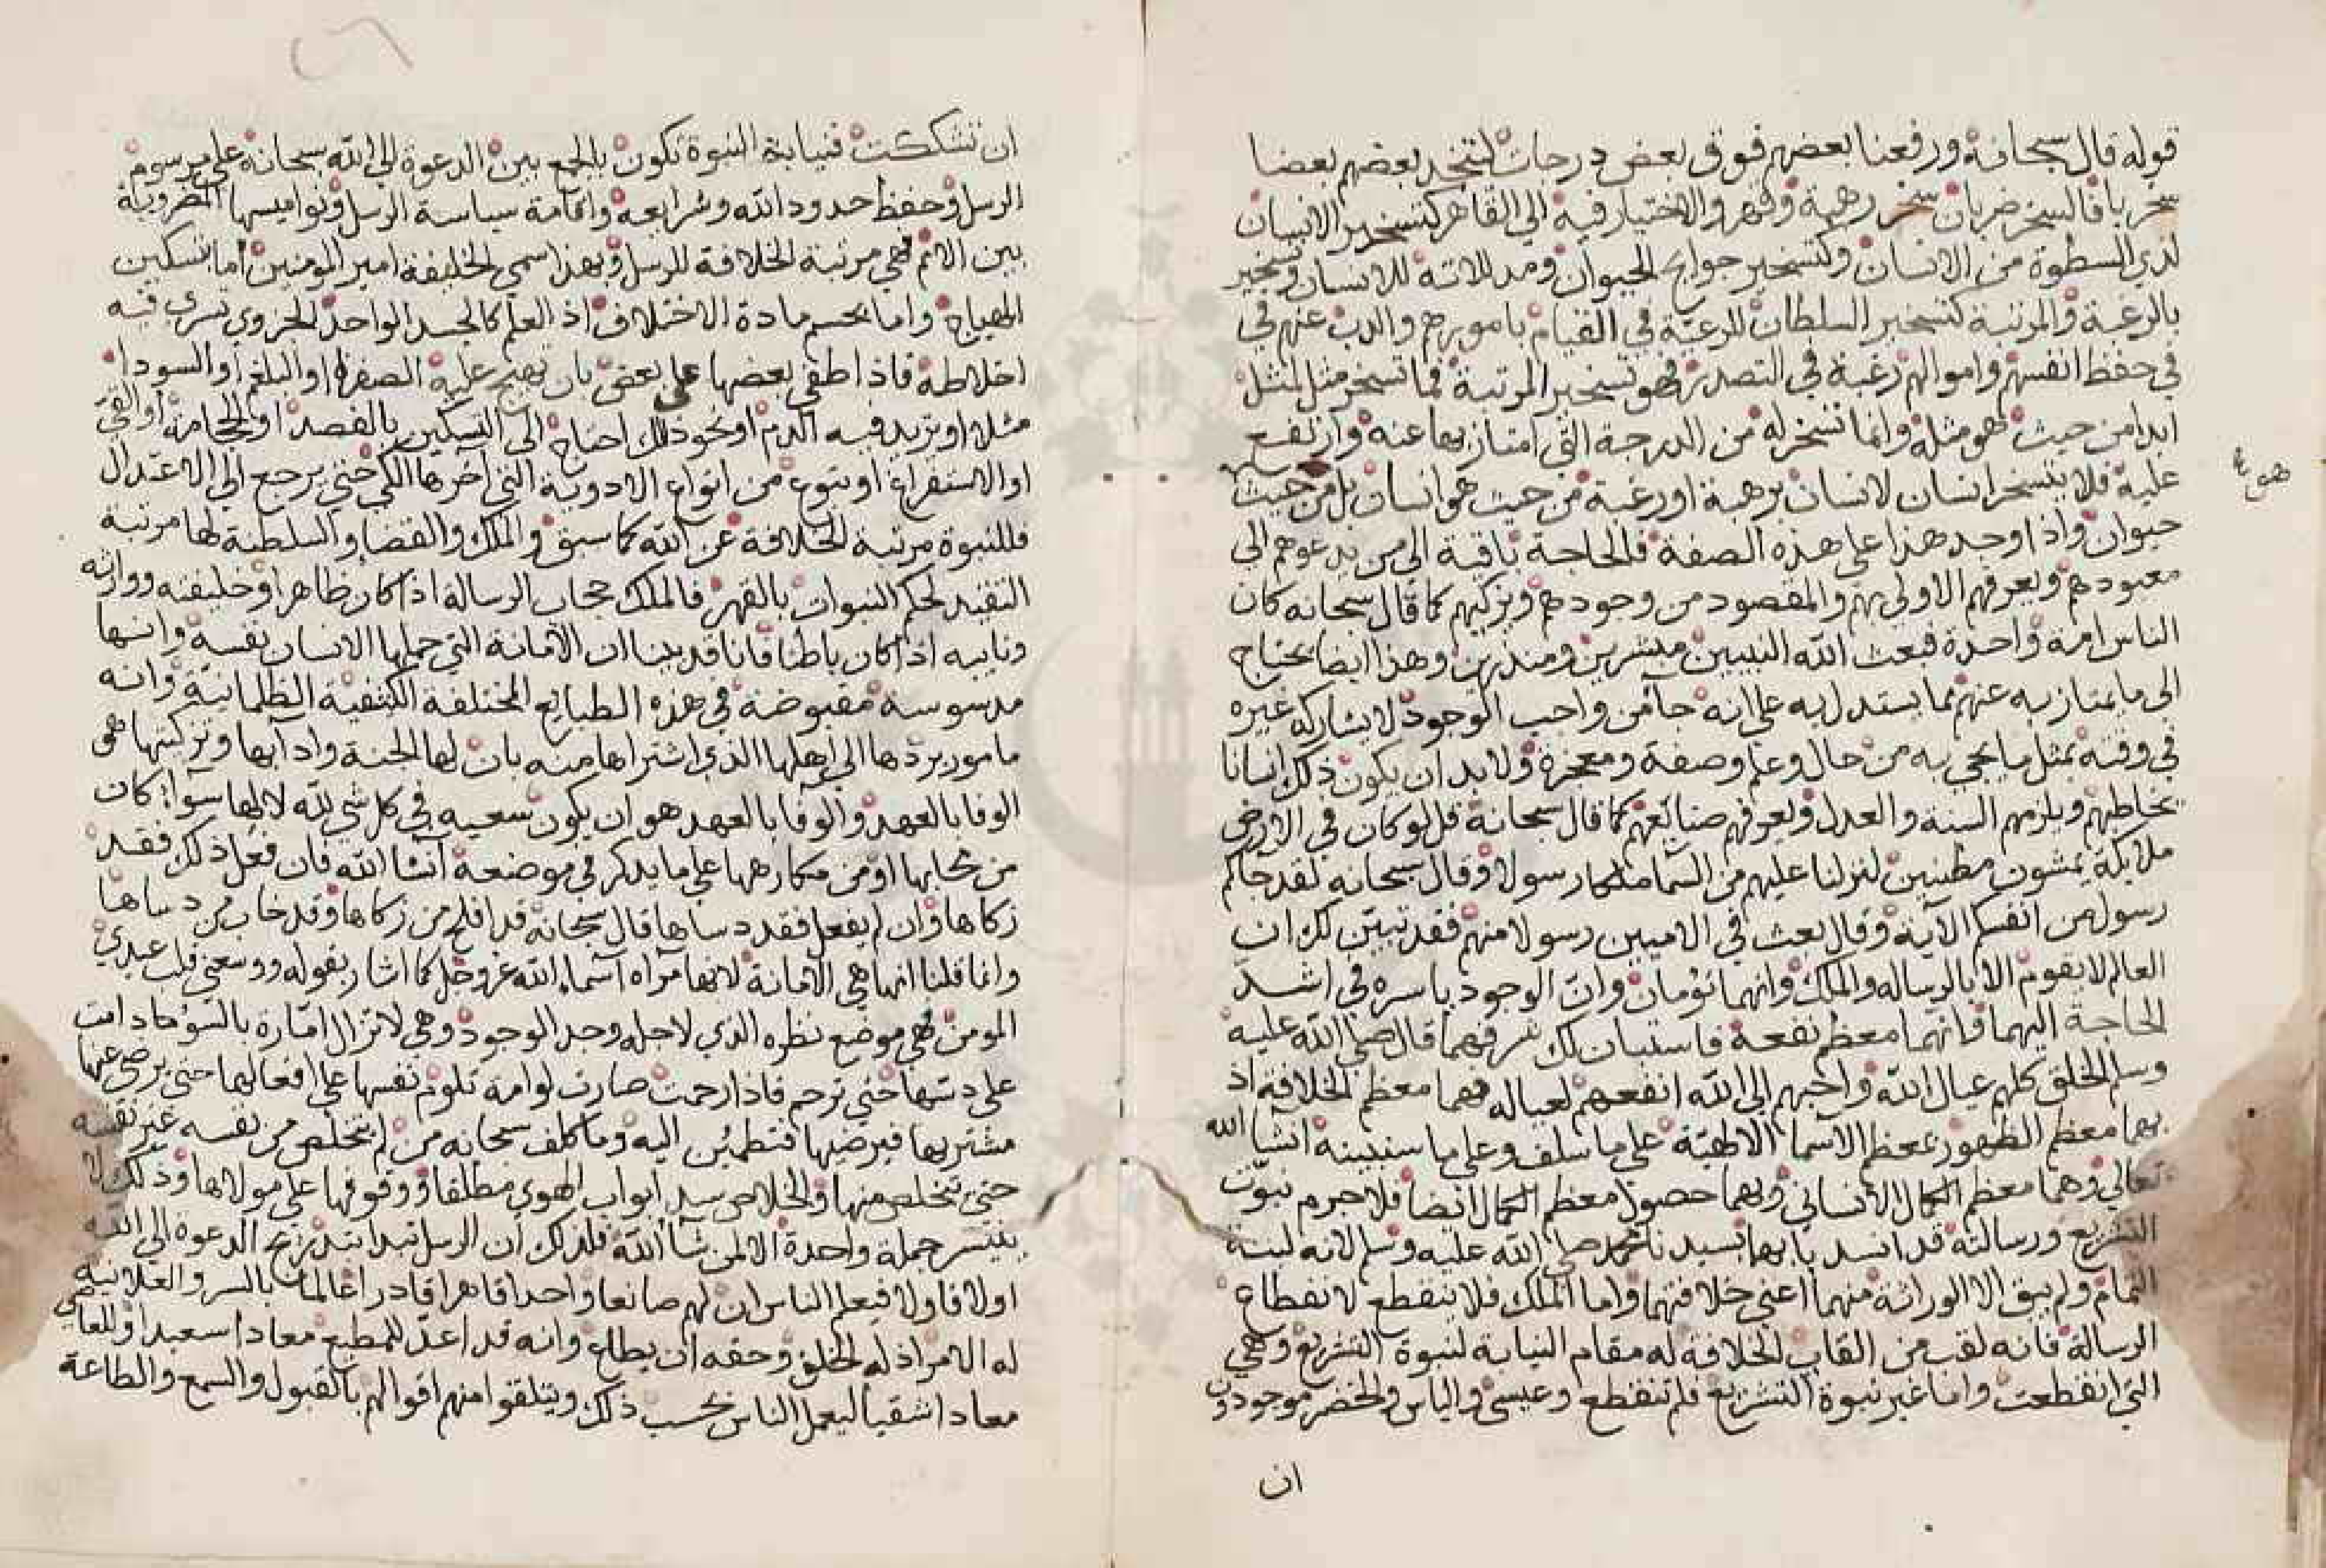 قوله قال سبحانه ورفعنا بعضهم فوق بعض درجات ليتخذ بعضهم بعضا
سخريا فالسخر ضربان سخر رهبة وقهر والاختيار فيه الى القاهر كتسخير الانسان
لذي السطوة من الانسان وكتسخير جوارح الحيوان ومدللاته للانسان وتسخير
بالرغبة والمرتبة كتسخير السلطان للرعية في القيام بامورهم والذب عنهم في
في حفظ انفسهم واموالهم رغبة في التصدر فهو تسخير المرتبة فما تسخر مثل لمثل
ابدا من حيث هو مثله وانما تسخر له من الدرجة التي امتاز بها عنه وارتفع
عليه فلا يتسخر انسان لانسان برهبة او رغبة من حيث هو انسان بل من حيث
هو بها
حيوان واذا وجد هذا على هذه الصفة فالحاجة باقية الى من يدعوهم الى
معبودهم ويعرفهم الاولى بهم والمقصود من وجودهم ويزكيهم كما قال سبحانه كان
الناس امة واحدة فبعث الله النبيين مبشرين ومنذرين وهذا ايضا يحتاج
الى ما يمتاز به عنهم مما يستدل به على انه جا من واجب الوجود لا يشاركه غيره
في وقته بمثل ما يجي به من حال وعلم وصفة ومعجزة ولا بد ان يكون ذلك انسانا
يخاطبهم ويلزمهم السنة والعدل ويعرفهم صنايعهم كما قال سبحانه قل لو كان في الارض
ملايكة يمشون مطمنين لنزلنا عليهم من السما ملكا رسولا وقال سبحانه لقد جاكم
رسول من انفسكم الاية وقال بعث في الاميين رسولا منهم فقد تبين لك ان
العالم لا يقوم الا بالرساله والملك وانهما تؤمان وان الوجود باسره في اشد
الحاجة اليهما فانهما معظم نفعه فاستبان لك شرفهما قال صلى الله عليه
وسلم الخلق كلهم عيال الله واحبهم الى الله انفعهم لعياله فهما معظم الخلافة اذ
بهما معظم الظهور بمعظم الاسما الالهية على ما سلف وعلى ما سنبينه انشا الله
تعالى وهما معظم الكمال الانساني وبهما حصول معظم الكمال ايضا فلا جرم نبوت
التشريع ورسالته قد انسد بابها بسيدنا محمد صلى الله عليه وسلم لانه لبنة
التمام ولم يبق الا الوراثة منهما اعني خلافتهما واما الملك فلا ينقطع لانقطاع
الرسالة فانه لقب من القاب الخلافة له مقام النيابة لنبوة التشريع وهي
التي انقطعت واما غير نبوة التشريع فلم تنقطع وعيسى والياس والخضر موجودون
ان
ان تشككت فنيابة النبوة تكون بالجمع بين الدعوة الى الله سبحانه على مرسوم
الرسل وحفظ حدود الله وشرايعه واقامة سياسة الرسل ونواميسها المضروبة
بين الامم فهي مرتبة الخلافة للرسل وبهذا سمي الخليفة امير المومنين اما بتسكين
الهياج واما بحسم مادة الاختلاف اذ العالم كالجسد الواحد الحزوي تسري فيه
اخلاطه فاذا طغى بعضها على بعض بان تهيج عليه الصفرا او البلغم او السودا
مثلا او تزيد فيه الدم او نحو ذلك احتاج الى التسكين بالفصد او الحجامة او القي
او الاستفراغ او بنوع من انواع الادوية التي اخرها الكي حتى يرجع الى الاعتدال
فللنبوة مرتبة الخلافة عن الله كما سبق والملك والقضا والسلطنة لها مرتبة
التنفيذ لحكم النبوات بالقهر فالملك حجاب الرسالة اذا كان ظاهرا وخليفته ووارثه
ونايبه اذا كان باطنا فانا قد بينا ان الامانة التي حملها الانسان نفسه وانها
مدسوسة مقبوضة في هذه الطبايع المختلفة الكثفية الظلمانية وانه
مامور بردها الى اهلها الذي اشتراها منه بان لها الجنة واداها وتزكيتها هي
الوفا بالعهد والوفا بالعهد هو ان يكون سعيه في كل شي لله لا لها سوا كان
من محابها او من مكارهها على ما يذكر في موضعه انشا الله فان فعل ذلك فقد
زكاها وان لم يفعل فقد دساها قال سبحانه قد افلح من زكاها وقد خاب من دساها
وانما قلنا انها هي الامانة لانها مراه اسما الله عز وجل كما اشار بقوله ووسعني قلب عبدي
المومن فهي موضع نظره الذي لاجله وجد الوجود وهي لا تزال امارة بالسو ما دامت
على دسها حتى ترحم فاذا رحمت صارت لوامة تلوم نفسها على افعالها حتى يرضى عنها
مشتريها فيرضيها فتطمئن اليه وما كلف سبحانه من لم يتخلص من نفسه غير نفسه
حتى تتخلص منها والخلاص سد ابواب الهوى مطلقا ووقوفها على مولاها وذلك لا
يتيسر جملة واحدة الا لمن شا الله فلذلك ان الرسل تبدا بتدريج الدعوة الى الله
اولا فاولا فيعلم الناس ان لهم صانعا واحدا قاهرا قادرا عالما بالسر والعلانية
له الامر اذ له الخلق وحقه ان يطاع وانه قد اعد للمطيع معادا سعيدا وللعاصي
معادا شقيا ليعمل الناس بحسب ذلك ويتلقوا منهم اقوالهم بالقبول والسمع والطاعة